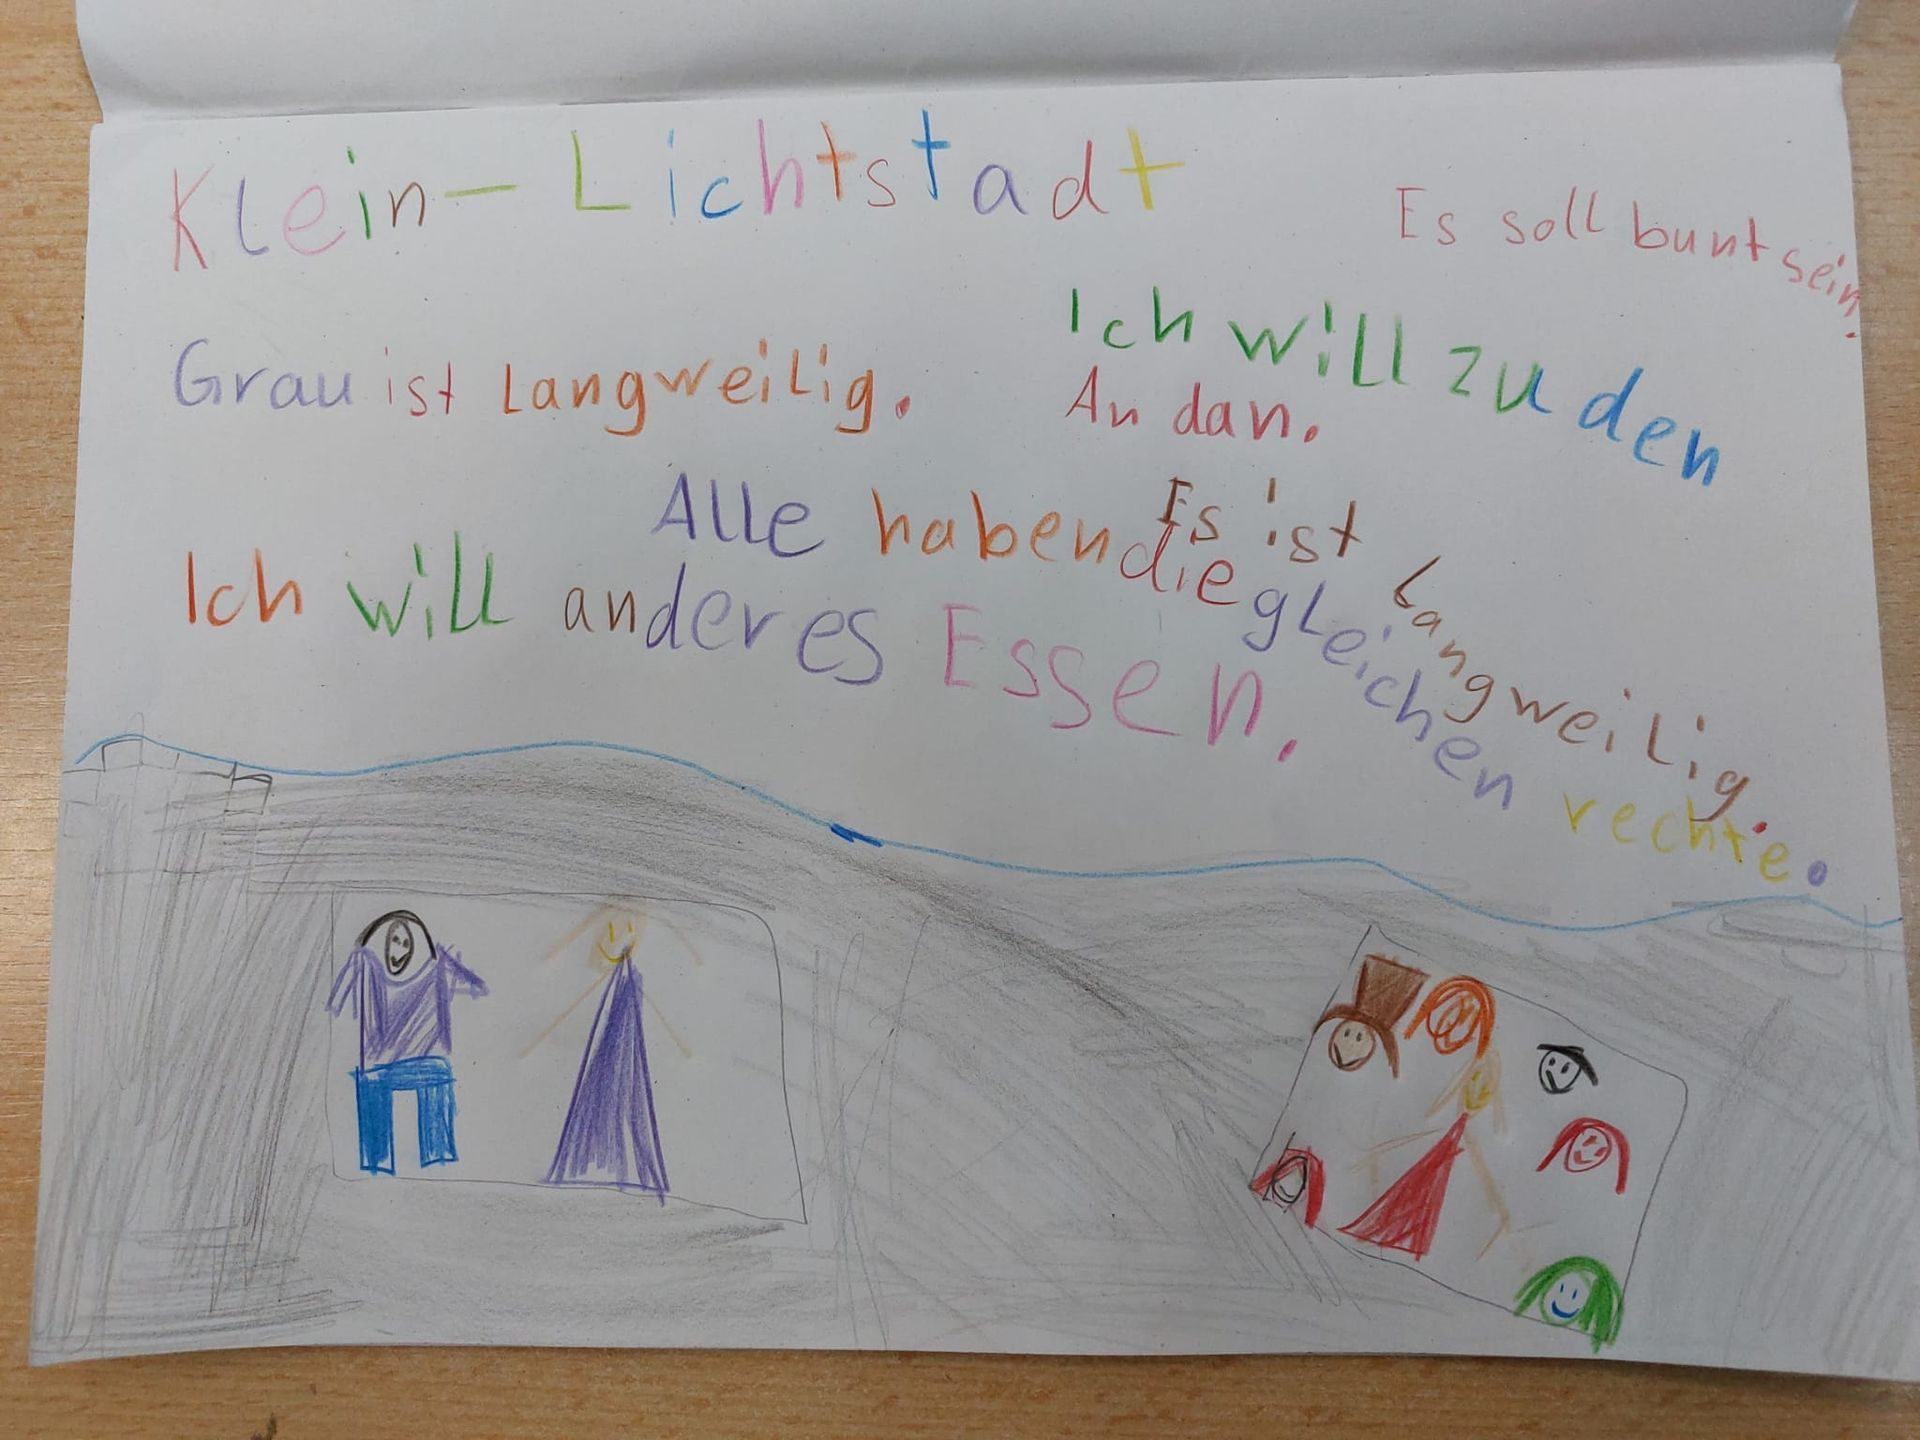 Klein-Lichtstadt
Es soll bunt sein.
Grau ist Langweilig.
Ich will zu den
An dan.
Alle haben die gleichen rechte.
Es ist Langweilig.
Ich will anderes Essen.